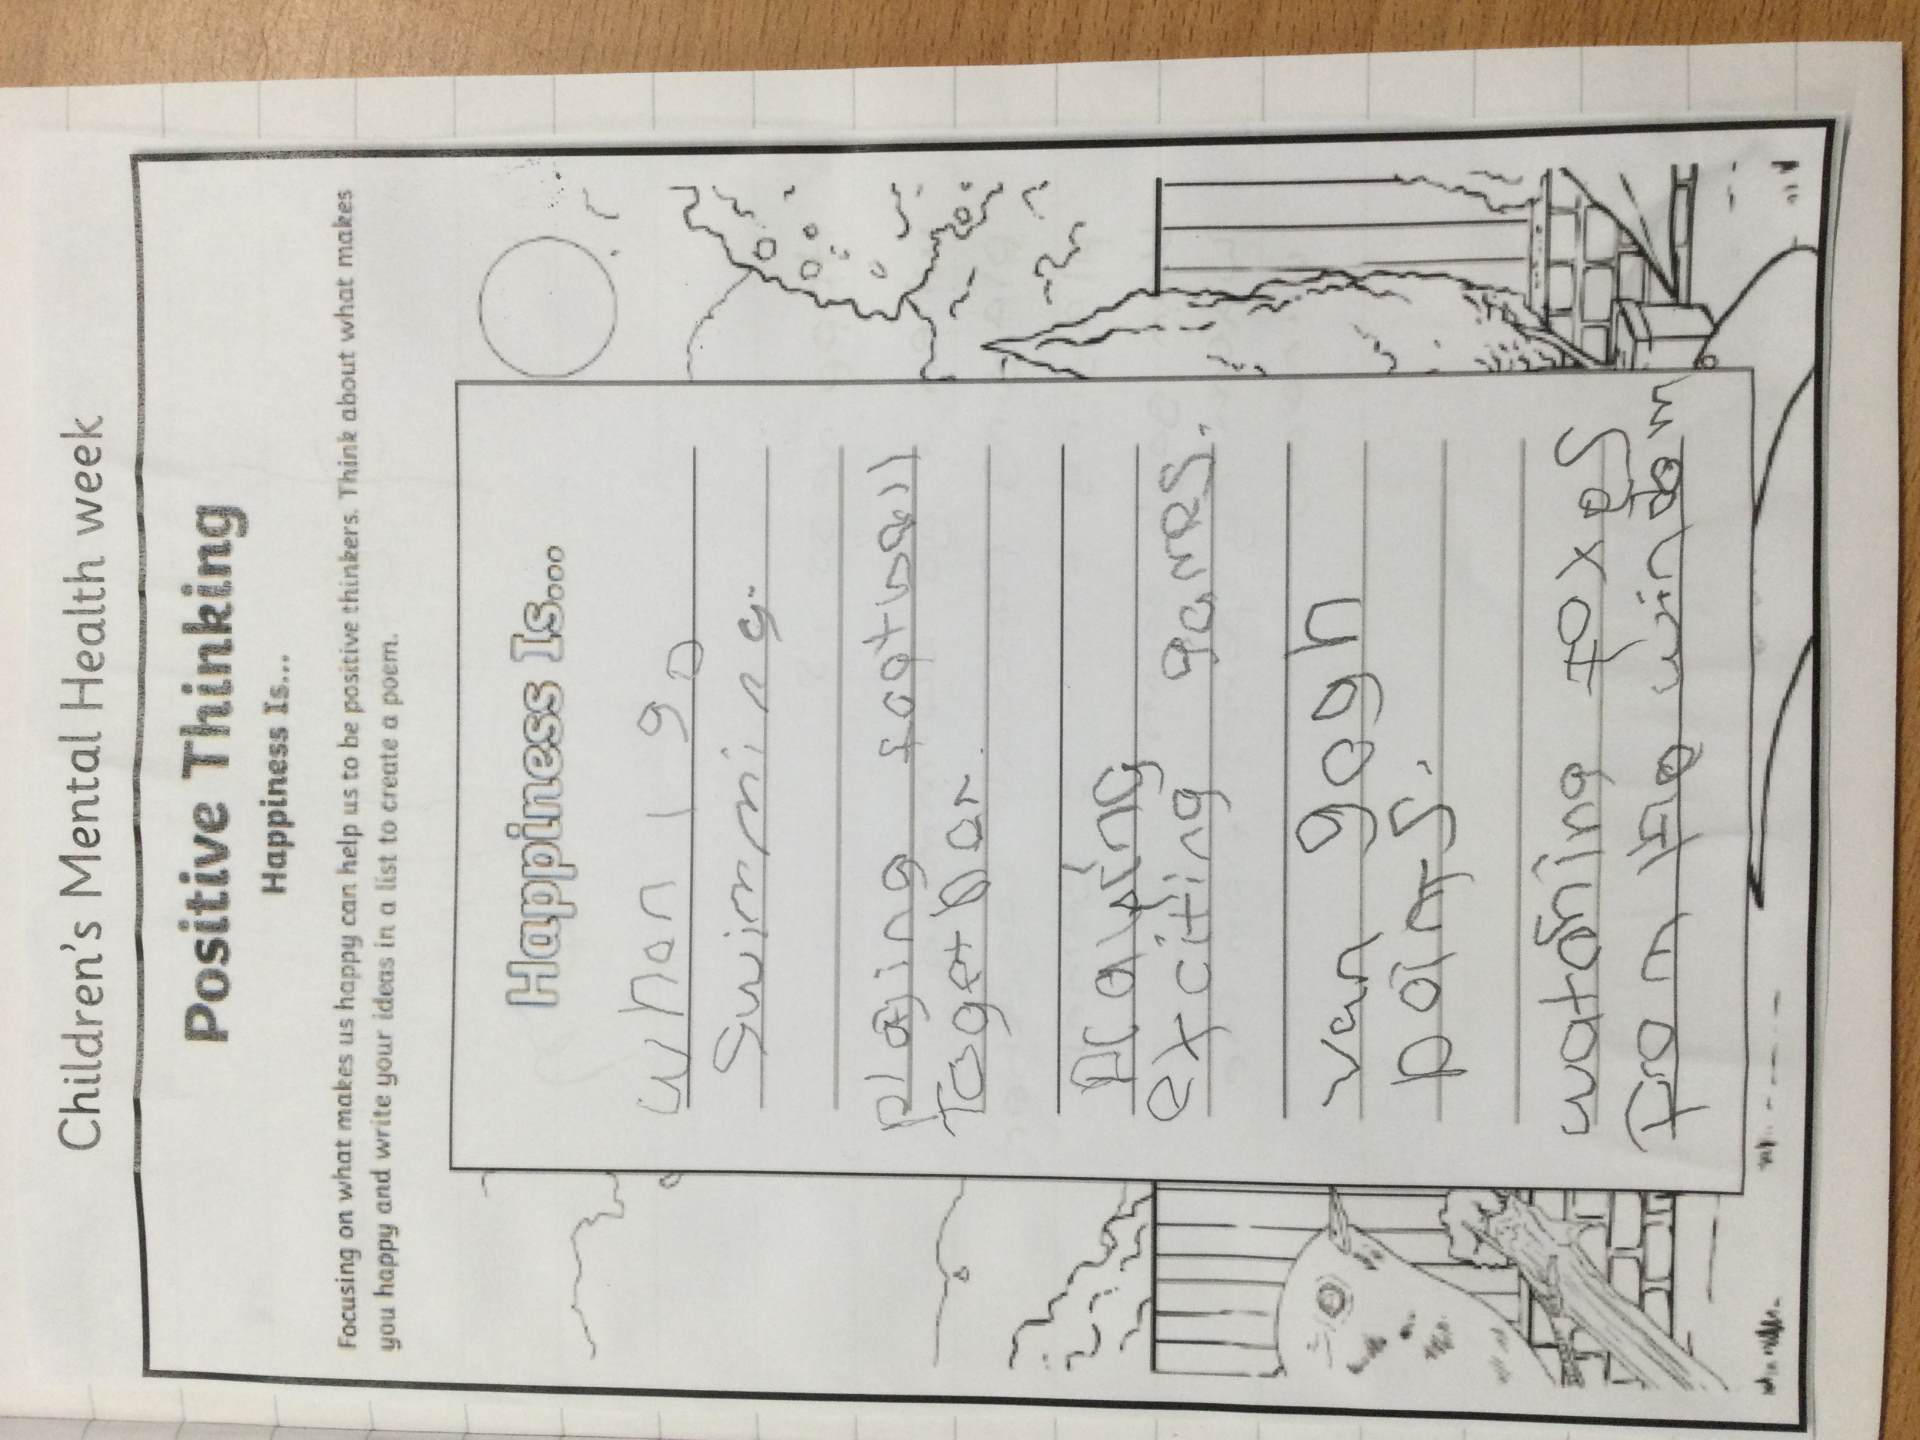 Children's Mental Health week
Positive Thinking
Happiness Is...
Focusing on what makes us happy can help us to be positive thinkers. Think about what makes
you happy and write your ideas in a list to create a poem.
Happiness Is...
when I go
Swimming.
plajing footwall
Togetber.
Playing
exciting games.
van gogh
pains.
watching foxes
from the window